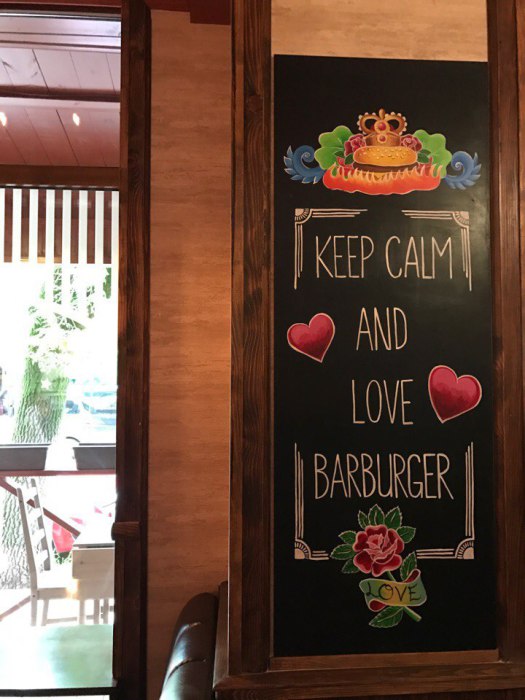 KEEP CALM
AND
LOVE
BARBURGER
LOVE